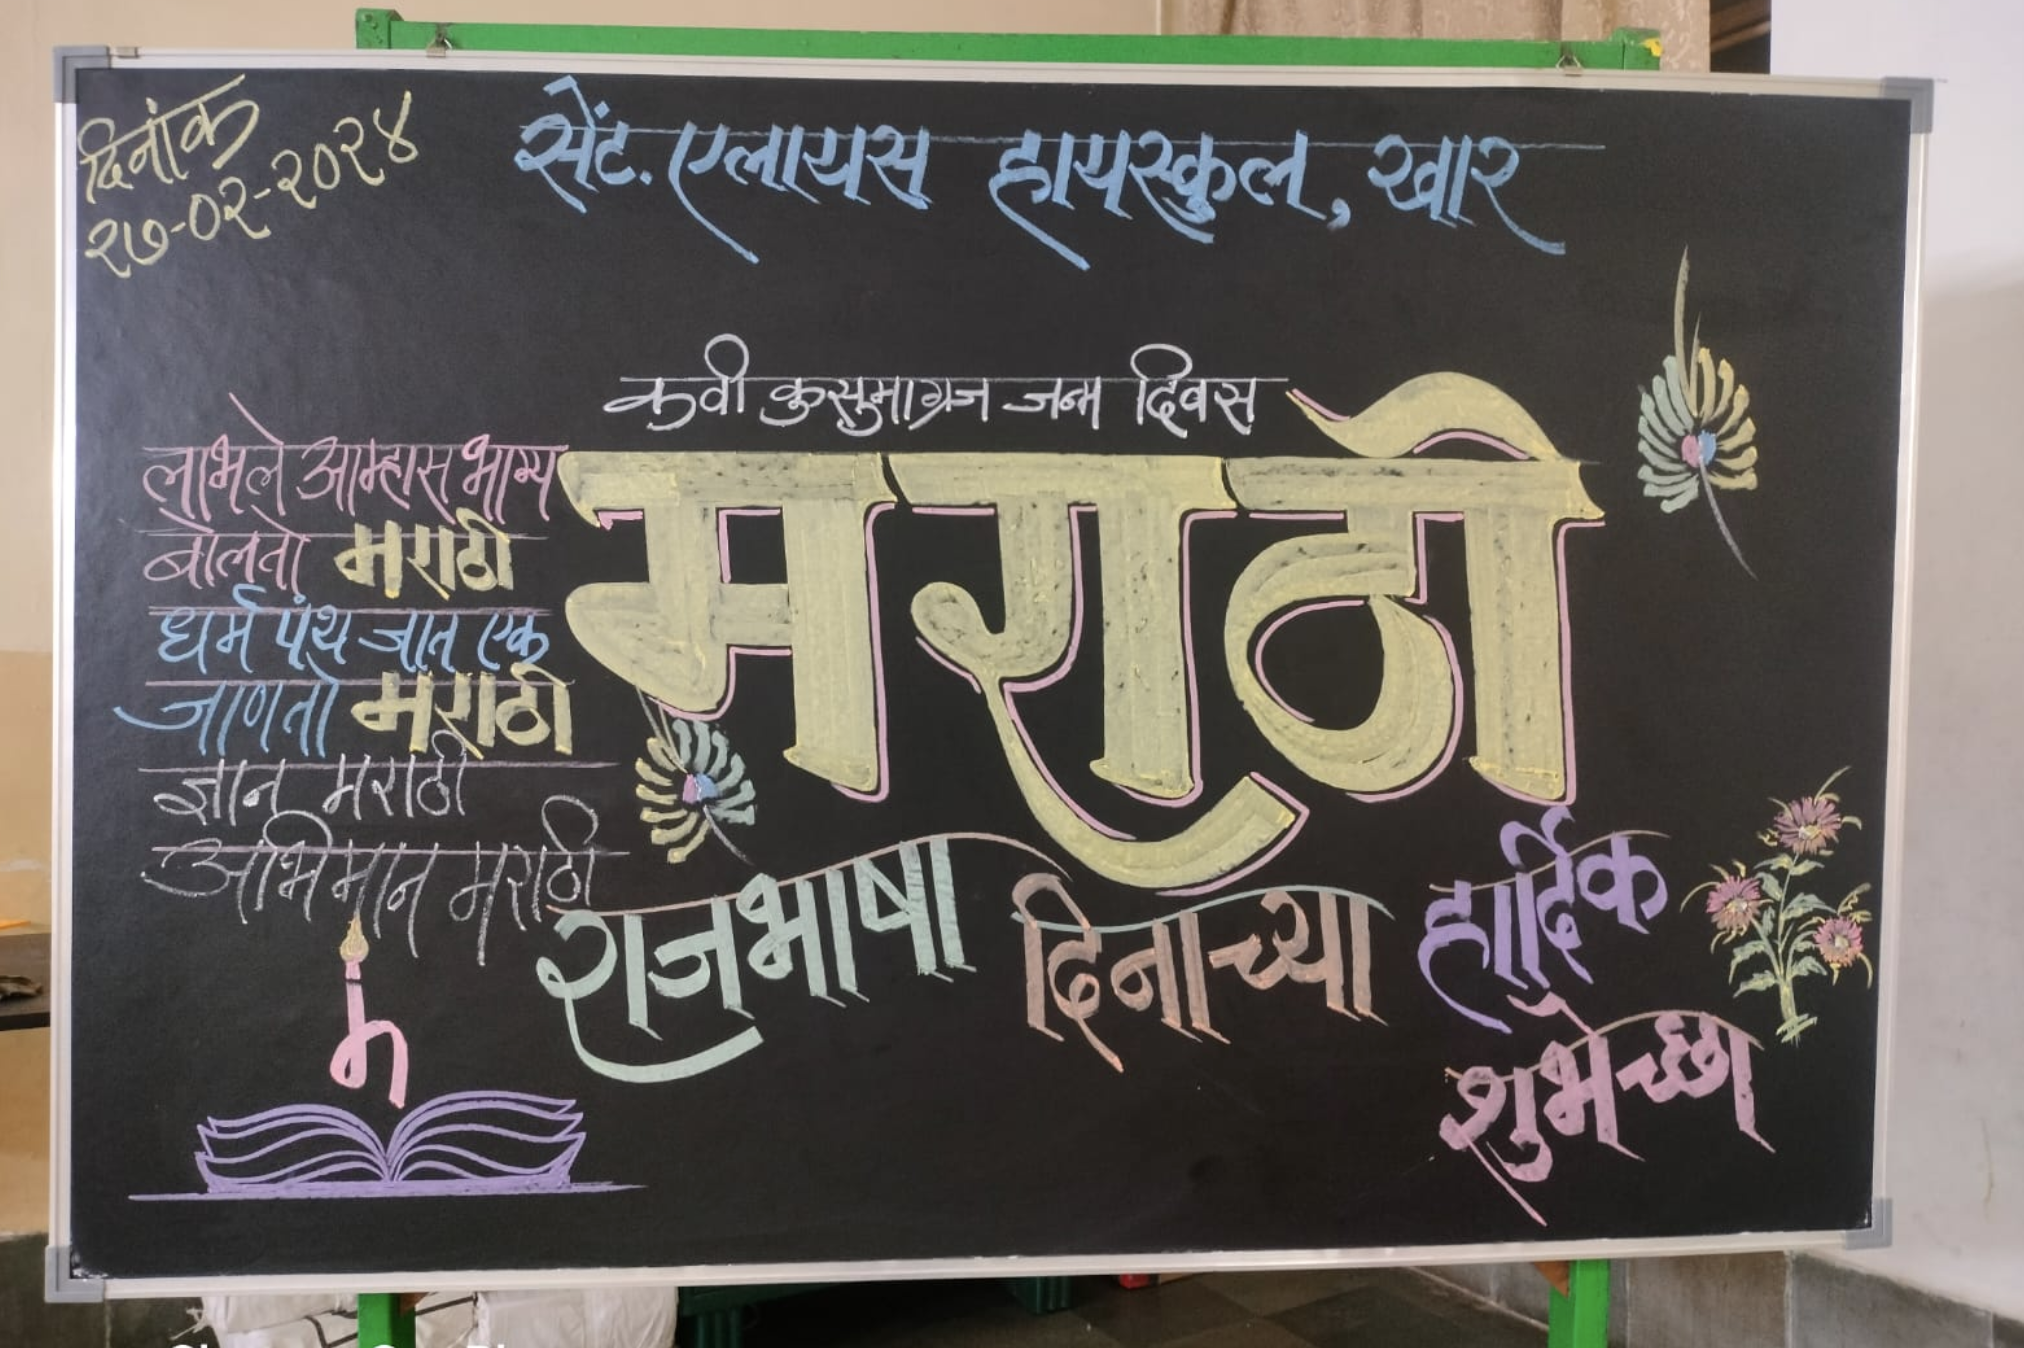 दिनांक
२७-०२-२०२४
सेंट. एलायस हायस्कुल, खार
कवी कुसुमाग्रज जन्म दिवस
लाभले आम्हास भाग्य
बोलतो मराठी
धर्म पंथ जात एक
जाणतो मराठी
ज्ञान मराठी
अभिमान मराठी
मराठी
राजभाषा दिनाच्या हार्दिक
शुभेच्छा